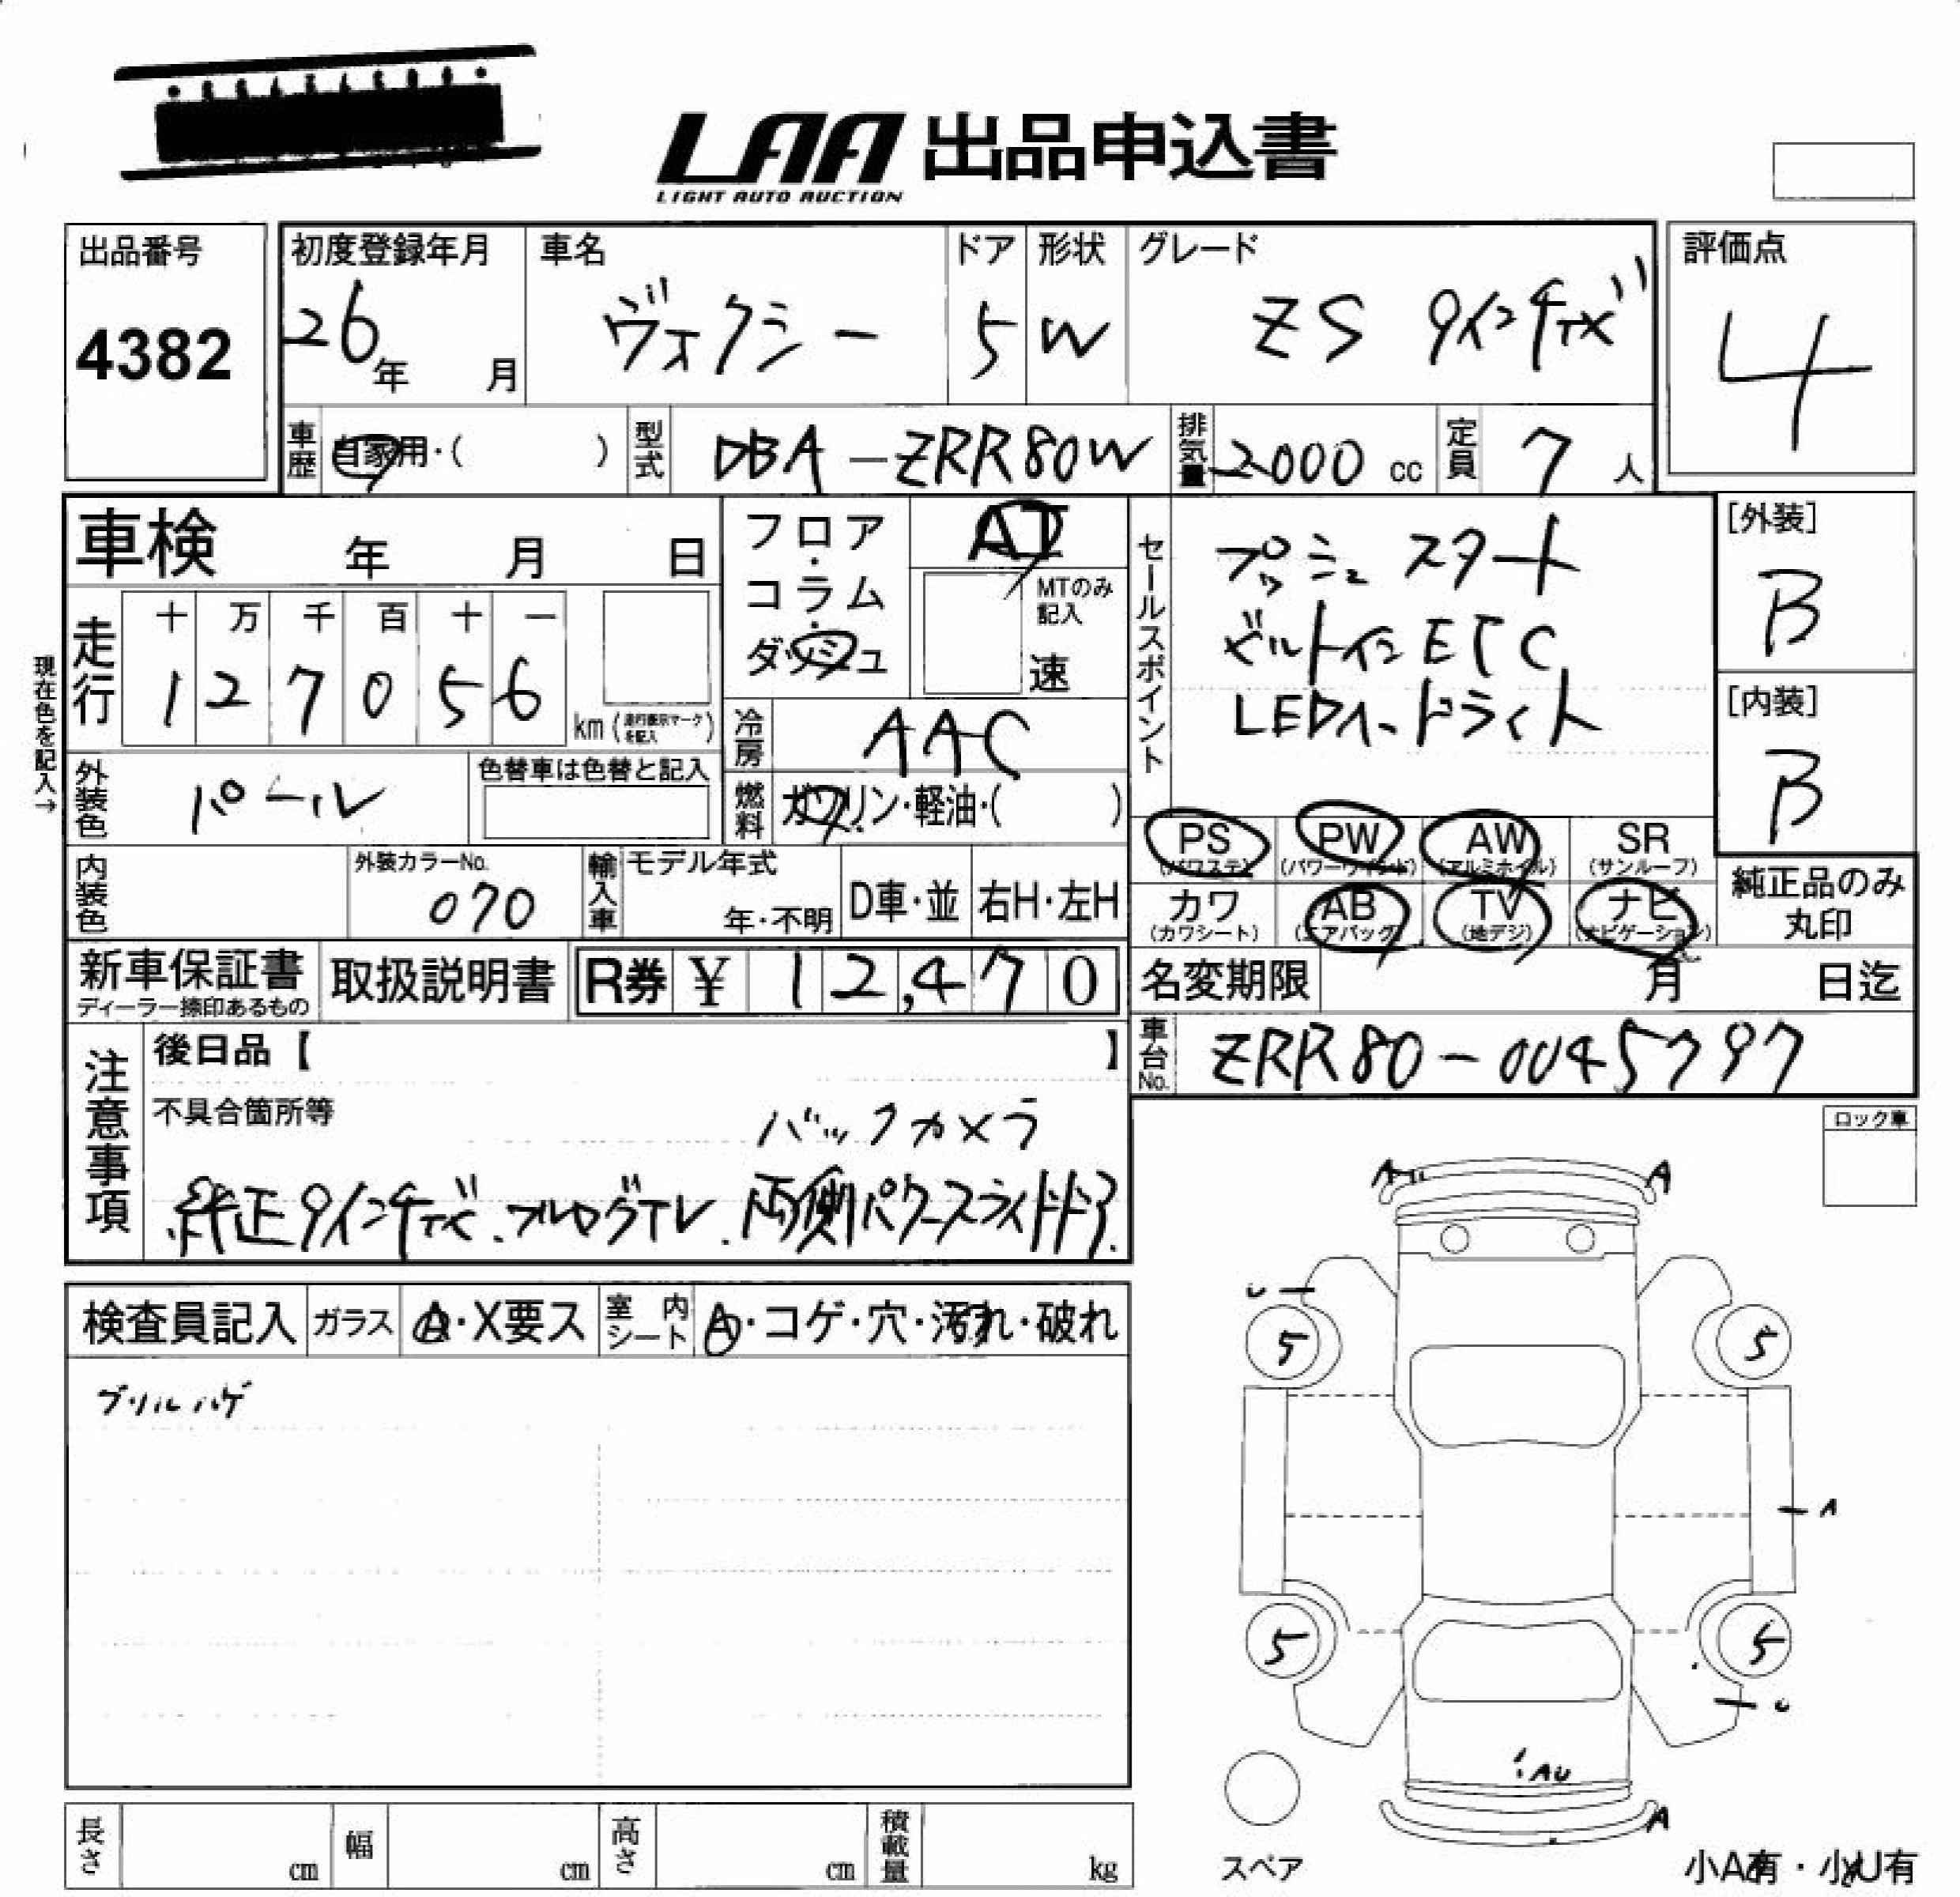 LAA 出品申込書
LIGHT AUTO AUCTION
出品番号
4382
初度登録年月
26年 月
車名
ヴォクシー
ドア
5
形状
W
グレード
ZS
評価点
4
車歴
自家用・( )
型式
DBA-ZRR80W
排気量
2000 cc
定員
7 人
車検 年 月 日
フロア・コラム・ダッシュ
AT
MTのみ記入
速
セールスポイント
プッシュスタート
ビルトインETC
LEDヘッドライト
[外装]
B
[内装]
B
現在色を記入→
走行
十 万 千 百 十 一
1 2 7 0 5 6
km (走行表示マークを記入)
冷房
AAC
外装色
パール
色替車は色替と記入
燃料
ガソリン・軽油・( )
PS (パワステ)
PW (パワーウインド)
AW (アルミホイル)
SR (サンルーフ)
カワ (カワシート)
AB (エアバッグ)
TV (地デジ)
ナビ (ナビゲーション)
純正品のみ丸印
内装色
外装カラーNo.
070
輸入車
モデル年式
年・不明
D車・並
右H・左H
新車保証書
ディーラー捺印あるもの
取扱説明書
R券 ¥ 12,470
名変期限 月 日迄
車台No.
ZRR80-0045797
注意事項
後日品【 】
不具合箇所等
バックカメラ
純正9インチナビ.フルセグTV.両側パワースライドドア.
ロック車
検査員記入
ガラス
A・X要ス
室内シート
A・コゲ・穴・汚れ・破れ
グリルハゲ
A
A
5
5
A
5
5
AU
A
スペア
長さ cm
幅 cm
高さ cm
積載量 kg
小A有・小U有